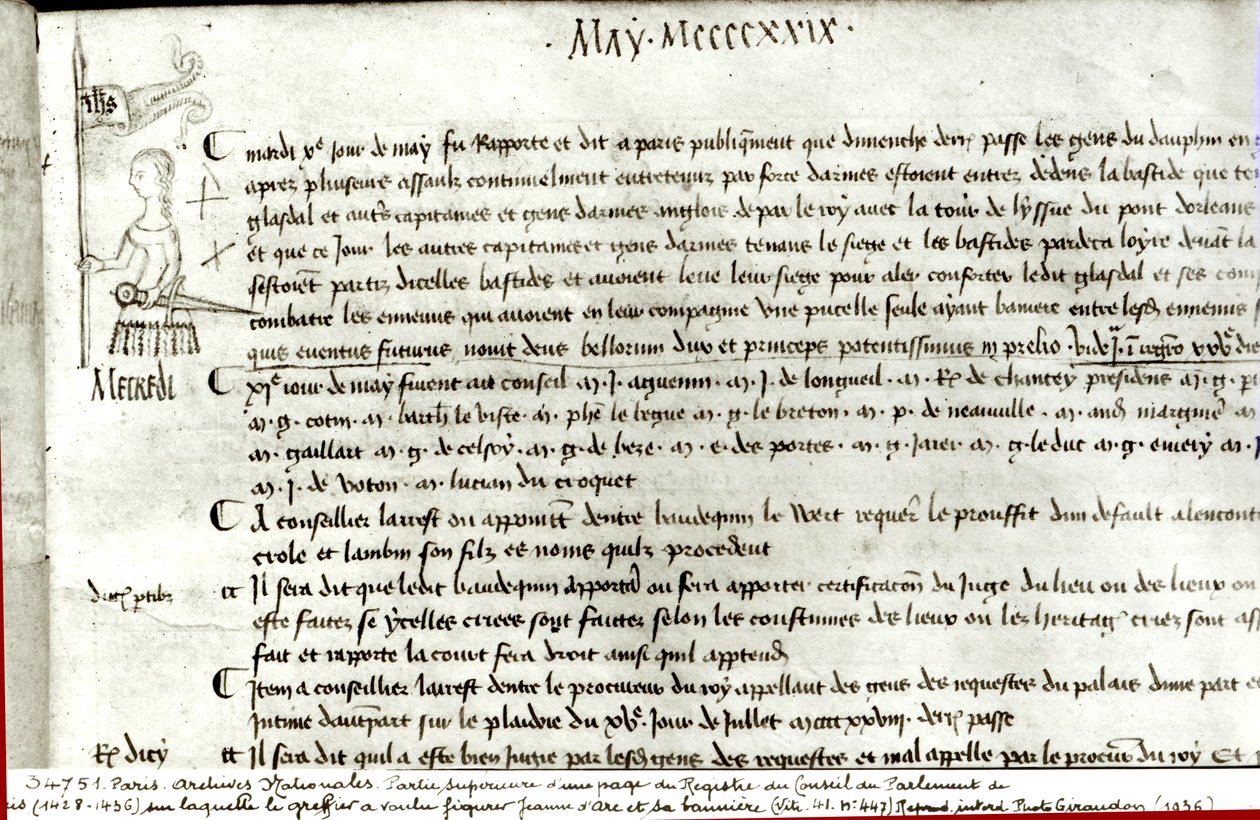 · MAY · MCCCCXXIX ·
ihs
mardi xe jour de may fu Rapporte et dit a paris publiquemt que dimenche derr passe les gens du dauphin en
aprez pluseurs assaulz continuelment entretenuz par force darmes estoient entrez dedens la bastide que te
glasdal et autrs capitaines et gens darmes anglois de par le roy avec la tour de lyssue du pont dorleans
et que ce jour les autres capitaines et gens darmes tenans le siege et les bastides pardeca loyre devāt la
sestoiēt partiz dicelles bastides et avoient leve leur siege pour aler conforter ledit glasdal et ses com
combatre les ennemis qui avoient en leur compagnie une pucelle seule ayant baniere entre lesd ennemis
quis eventus futurus novit deus bellorum dux et princeps potentissimus in prelio
MECREDI
xje jour de may furent au conseil m. J. aguenin. m. J. de longueil. m. R. de chancey presidens m. g.
m. g. cotin. m. barth le viste. m. phe le begue m. g. le breton. m. p. de neauville. m. and marguie
m. gaillart m. g. de celsoy. m. g. de beze. m. e. des portes. m. g. m. g. le duc m. g. emery m.
m. J. de voton. m. lucian du croquet
A conseillier larrest ou appoint dentre baudequin le Wert requer le prouffit dun default alencont
crole et lambin son filz es noms quilz procedent
Il sera dit que ledit baudequin apporta ou fera apporter certificacon du Juge du lieu ou des lieux ou
este faitez se ycelles criees sont faittez selon les coustumes des lieux ou lez heritag criez sont
fait et rapporte la court fera droit ainsi quil apptendr
Item a conseillier larrest dentre le procureur du roy appellant des gens des requestes du palais dune part et
Intime dautrepart sur le plaidoie du xve. Jour de Juillet mccccxxviii. derr passe
R. dicy
Il sera dit quil a este bien Jugie par lesd gens des requestes et mal appelle par le procur du roy Et
34751. Paris. Archives Nationales. Partie supérieure d'une page du Registre du Conseil du Parlement de
ris (1428-1436) sur laquelle le greffier a voulu figurer Jeanne d'Arc et sa bannière (Vitr. 41. N° 447) Reprod. interd Photo Giraudon (1936)